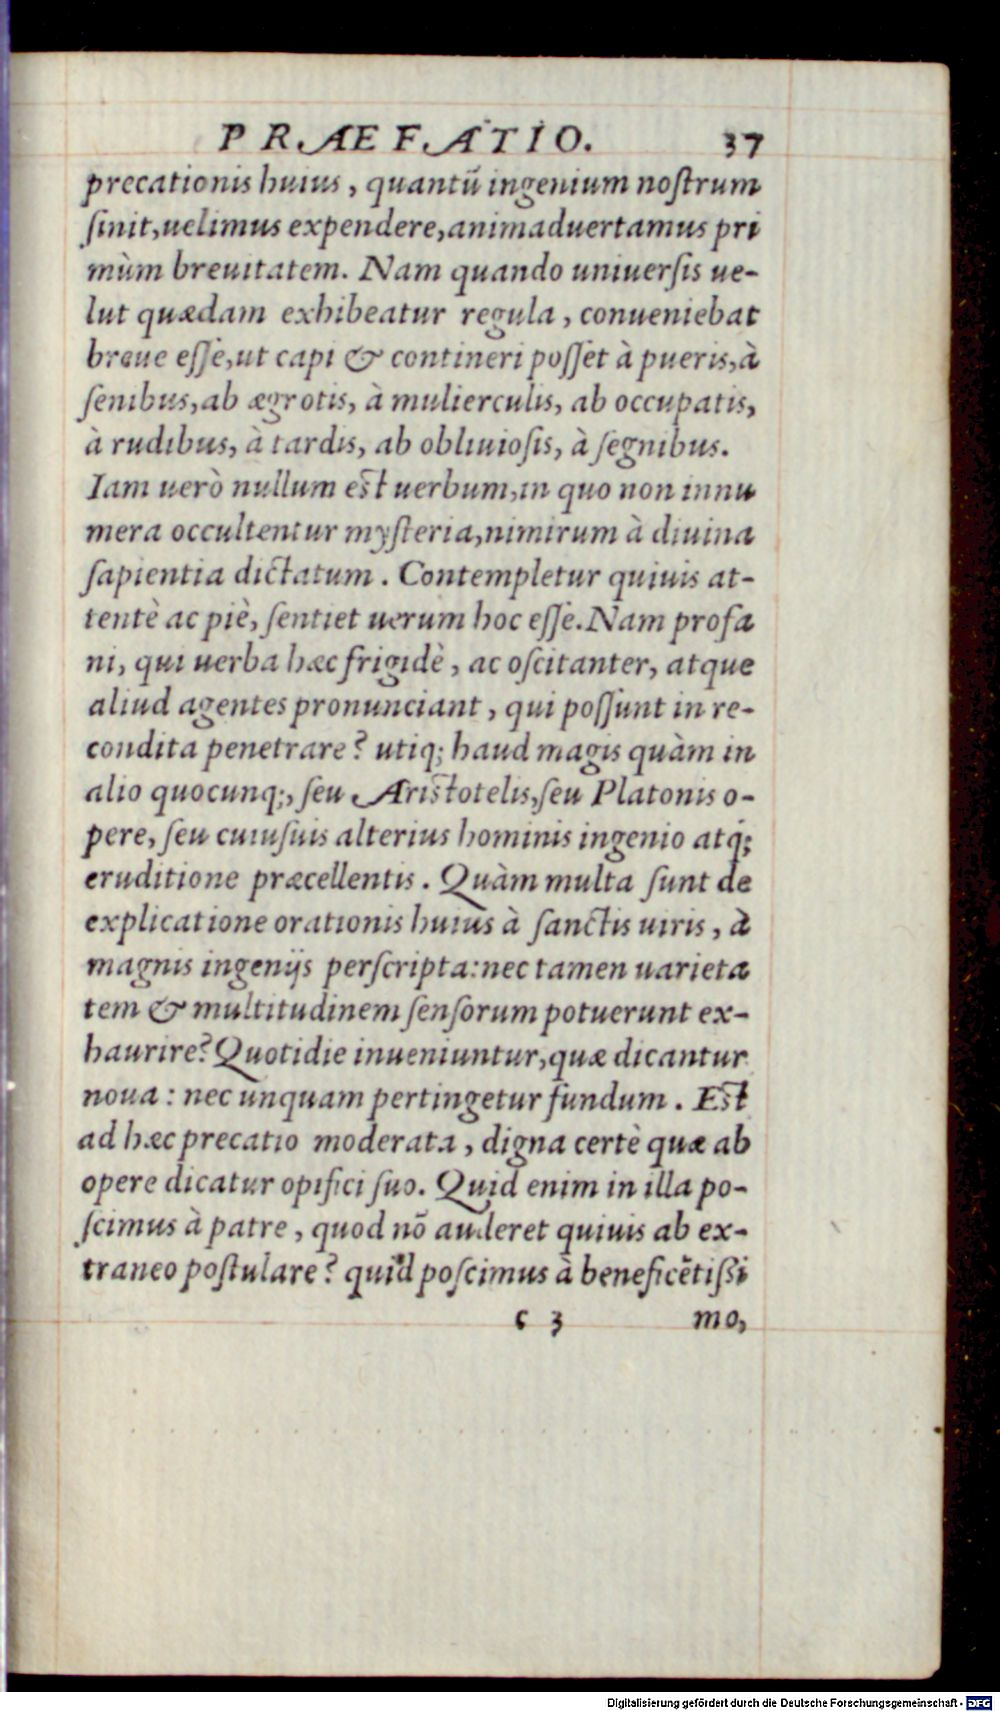 PRÆFATIO. 37
precationis huius, quantũ ingenium noſtrum
ſinit, uelimus expendere, animaduertamus pri
mùm breuitatem. Nam quando uniuerſis ue-
lut quædam exhibeatur regula, conueniebat
breue eſſe, ut capi & contineri poſſet à pueris, à
ſenibus, ab ægrotis, à mulierculis, ab occupatis,
à rudibus, à tardis, ab obliuioſis, à ſegnibus.
Iam uerò nullum eſt uerbum, in quo non innu
mera occultentur myſteria, nimirum à diuina
ſapientia dictatum. Contempletur quiuis at-
tentè ac piè, ſentiet uerum hoc eſſe. Nam profa
ni, qui uerba hæc frigidè, ac oſcitanter, atque
aliud agentes pronunciant, qui poſſunt in re-
condita penetrare? utiq; haud magis quàm in
alio quocunq;, ſeu Ariſtotelis, ſeu Platonis o-
pere, ſeu cuiuſuis alterius hominis ingenio atq́;
eruditione præcellentis. Quàm multa ſunt de
explicatione orationis huius à ſanctis uiris, à
magnis ingenijs perſcripta: nec tamen uarieta
tem & multitudinem ſenſorum potuerunt ex-
haurire? Quotidie inueniuntur, quæ dicantur
noua: nec unquam pertingetur fundum. Eſt
ad hæc precatio moderata, digna certè quæ ab
opere dicatur opifici ſuo. Quid enim in illa po-
ſcimus à patre, quod nõ auderet quiuis ab ex-
traneo poſtulare? quid poſcimus à beneficẽtiſſi
c 3 mo,
Digitalisierung gefördert durch die Deutsche Forschungsgemeinschaft - DFG